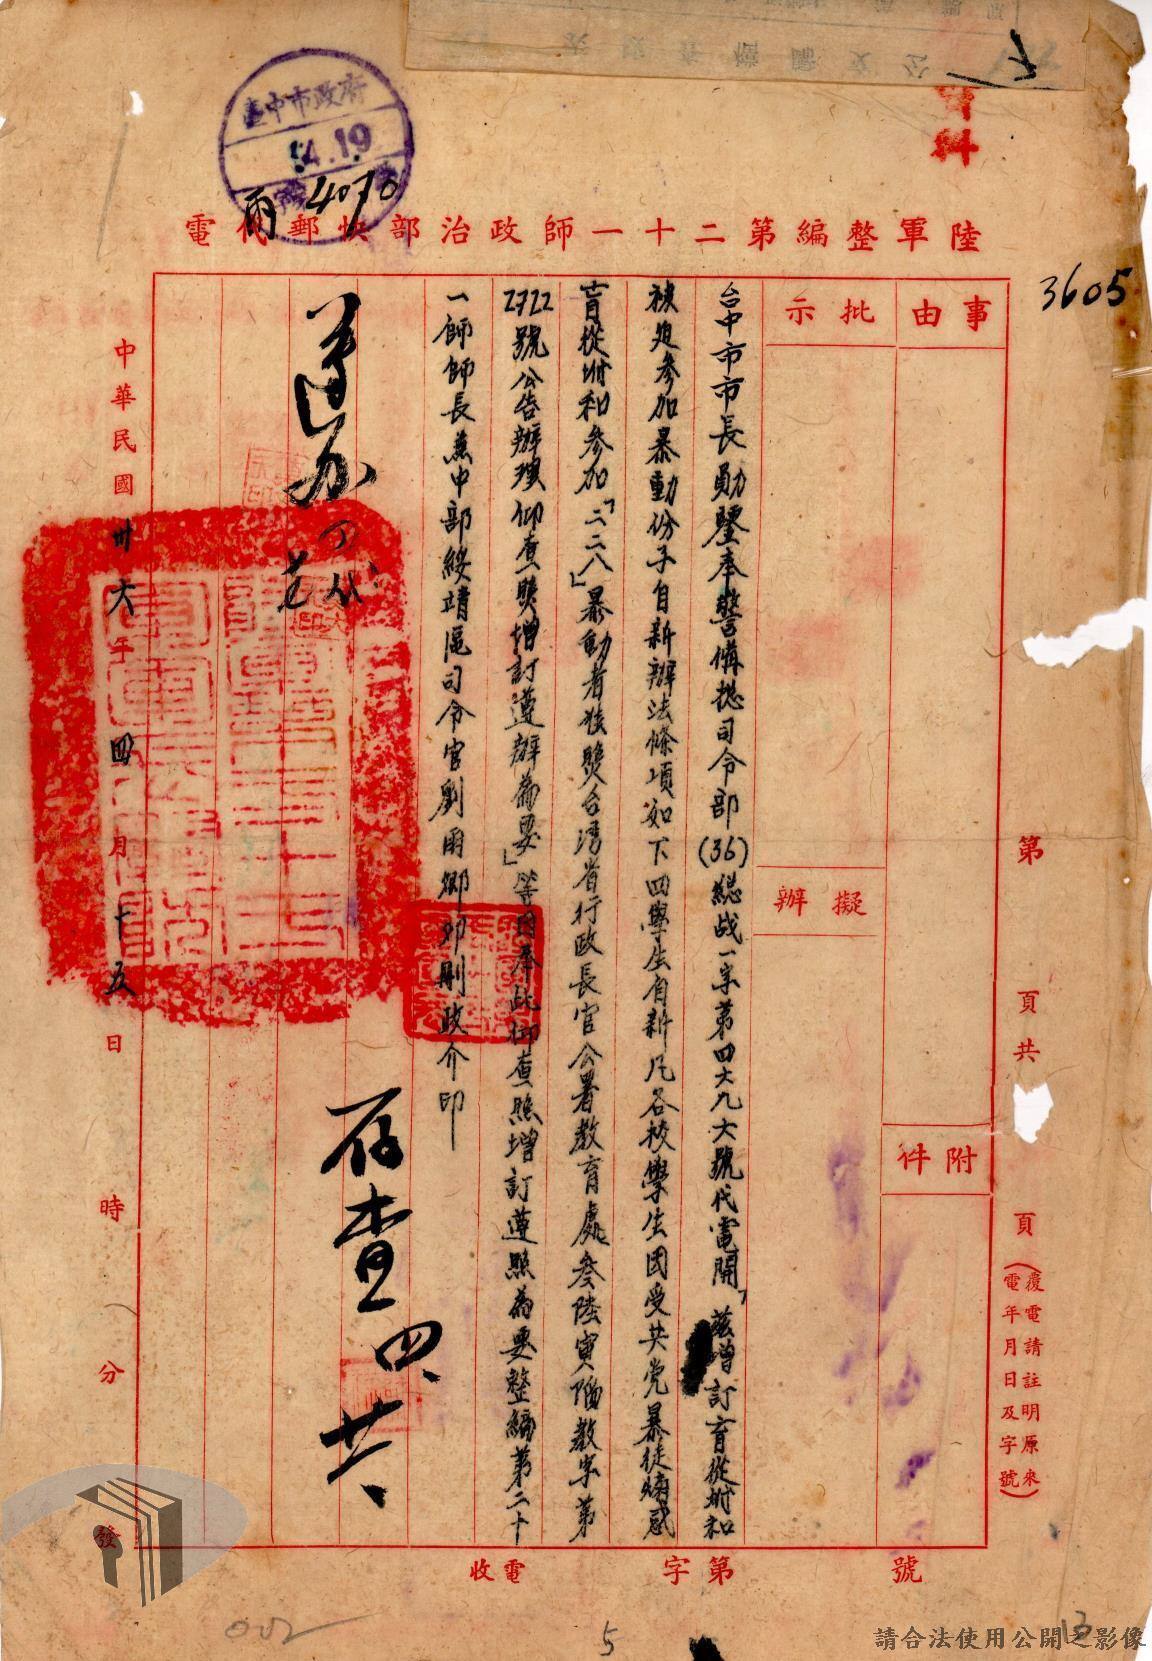 資料
臺中市政府
4.19
雨4070
3605
陸軍整編第二十一師政治部快郵代電
事由
附件
批示
擬辦
台中市市長勛鑒奉警備總司令部(36)總战一字第四六九六號代電開「茲增訂盲從附和
被迫參加暴動份子自新辦法條項如下四學生自新凡各校學生因受共党暴徒煽惑
盲從附和參加「二二八」暴動者後煚台灣省行政長官公署教育處叁陸寅 教字第
2722號公告辦理仰查照增訂遵辦為要」等因奉此仰查照增訂遵照為要整編第二十
一師師長兼中部綏靖區司令官劉雨卿卯刪政介印
存查四、廿
中華民國卅六年四月十五日時分發
第頁共頁
(覆電請註明原來
電年月日及字號)
收電字第號
002
5
13
請合法使用公開之影像